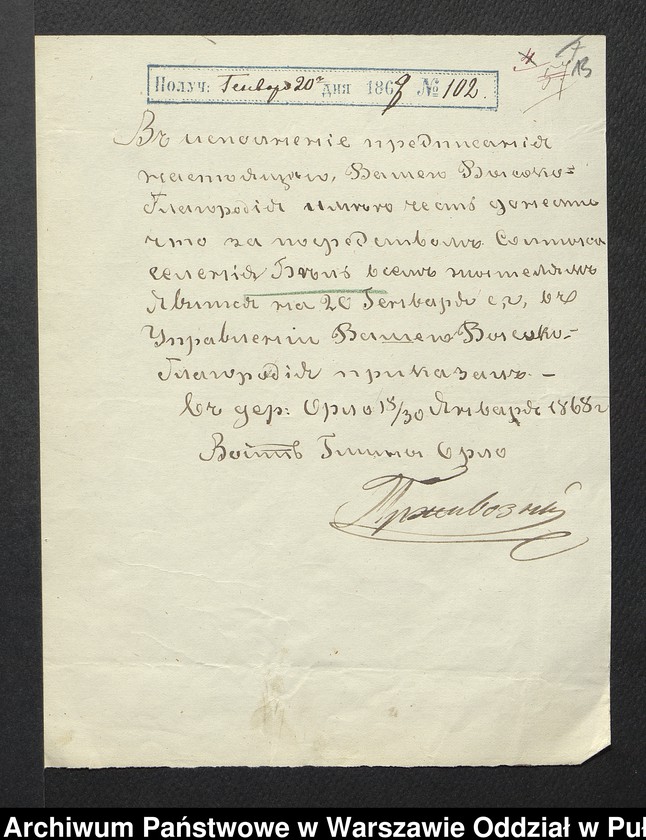 Получ: Генваря 20го дня 1868 № 102.
13
Въ исполненiе предписанiя
настоящаго, Вашего Высоко=
благородiя имѣю честь донести
что за посредствомъ Солтиса
селенiя всемъ жителямъ
явится на 20 Генваря с,г, въ
Управленiи Вашего Высоко-
благородiя приказалъ. —
въ дер: Орло 18/30 Января 1868 г
Войтъ Гмина Орло
Прживозный
Archiwum Państwowe w Warszawie Oddział w Puł